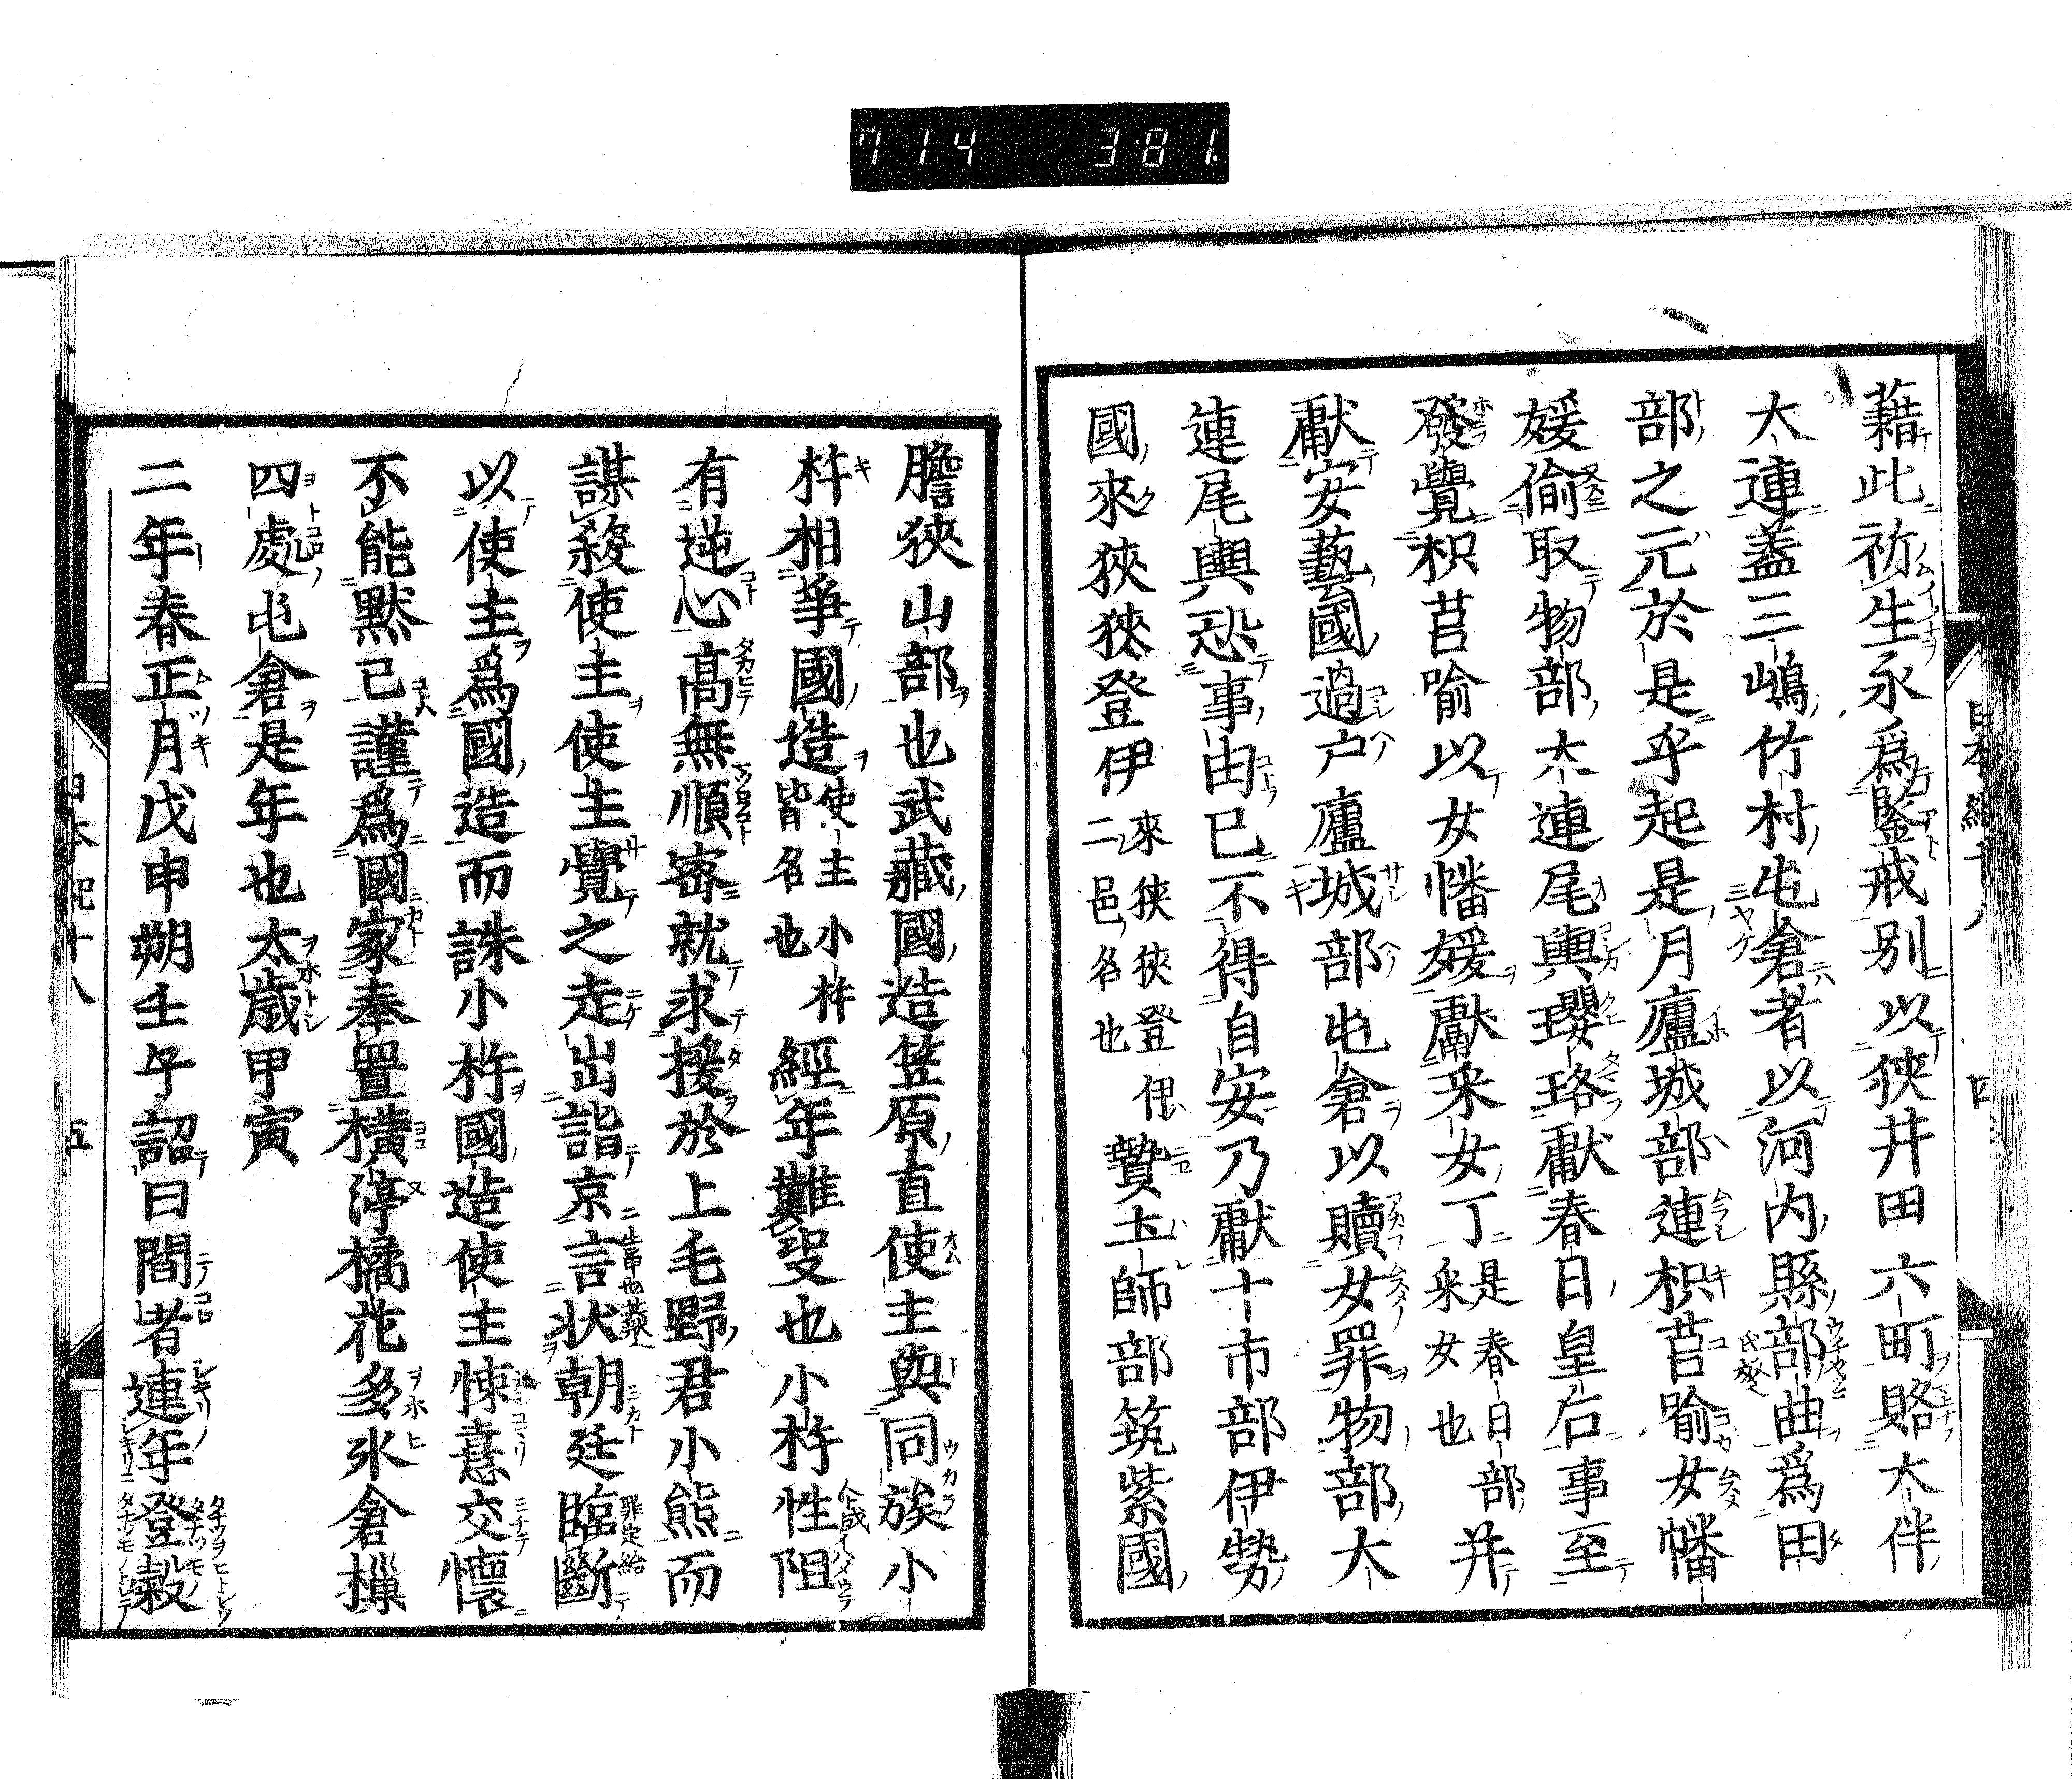 714 381
藉此祢生永爲鑒戒別以狹井田六町賂大伴
大連盖三嶋竹村屯倉者以河内縣部曲爲田
部之元於是乎起是月廬城部連枳莒喩女幡
媛偷取物部大連尾輿瓔珞獻春日皇后事至
發覺枳莒喩以女幡媛獻采女丁是春日部采女也并
獻安藝國過戸廬城部屯倉以贖女罪物部大
連尾輿恐事由已不得自安乃獻十市部伊勢
國來狹狹登伊來狹狹登伊二邑名也贄土師部筑紫國
膽狹山部也武藏國造笠原直使主與同族小
杵相爭國造使主小杵皆名也經年難決也小杵性阻
有逆心高無順密就求援於上毛野君小熊而
謀殺使主使主覺之走出詣京言状朝廷臨斷
以使主爲國造而誅小杵國造使主悚憙交懷
不能默已謹爲國家奉置橫渟橘花多氷倉樔
四處屯倉是年也太歳甲寅
二年春正月戊申朔壬午詔曰間者連年登穀
日本紀十八 五